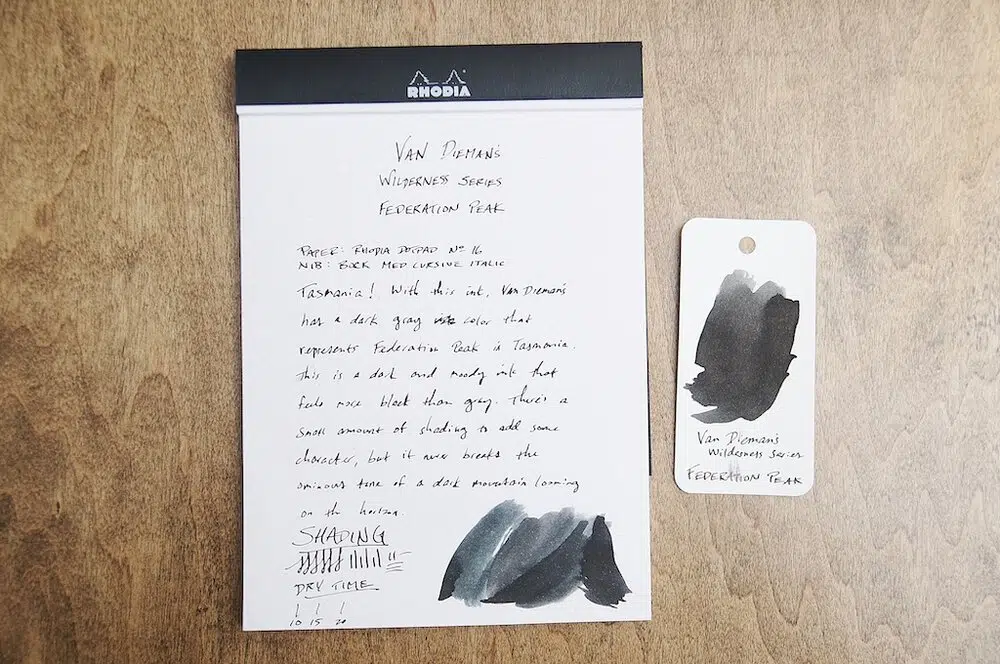 RHODIA
VAN DIEMAN'S
WILDERNESS SERIES
FEDERATION PEAK
PAPER: RHODIA DOTPAD Nº 16
NIB: BOCK MED CURSIVE ITALIC
Tasmania! With this ink, Van Dieman's
has a dark gray color that
represents Federation Peak in Tasmania.
This is a dark and moody ink that
feels more black than gray. There's a
small amount of shading to add some
character, but it never breaks the
ominous tone of a dark mountain looming
on the horizon.
SHADING
DRY TIME
10 15 20
Van Dieman's
Wilderness Series
FEDERATION PEAK